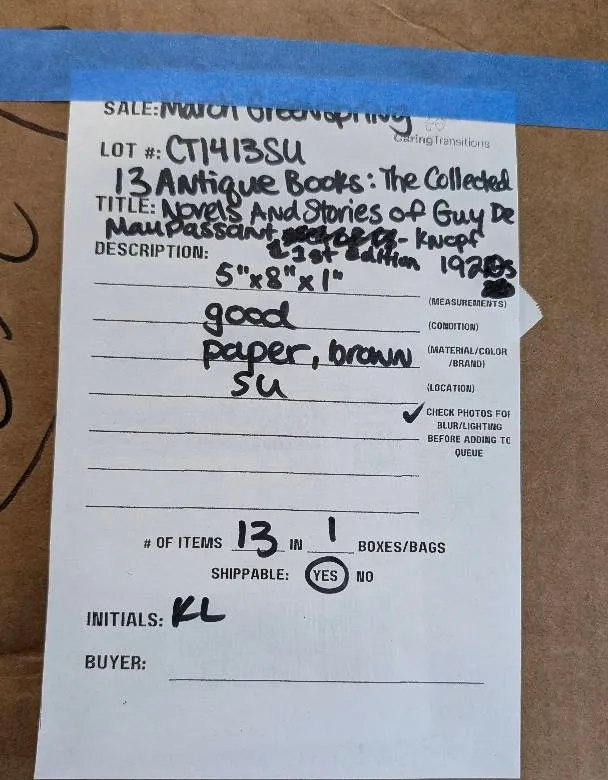 SALE: March Greenspring
CaringTransitions
LOT #: CT1413SU
13 Antique Books: The Collected
TITLE: Novels And Stories of Guy De
Maupassant - Knopf
1st Edition 1920s
DESCRIPTION:
5"x8"x1" (MEASUREMENTS)
good (CONDITION)
paper, brown (MATERIAL/COLOR
/BRAND)
SU (LOCATION)
✓ CHECK PHOTOS FOR
BLUR/LIGHTING
BEFORE ADDING TO
QUEUE
# OF ITEMS 13 IN 1 BOXES/BAGS
SHIPPABLE: YES NO
INITIALS: KL
BUYER: